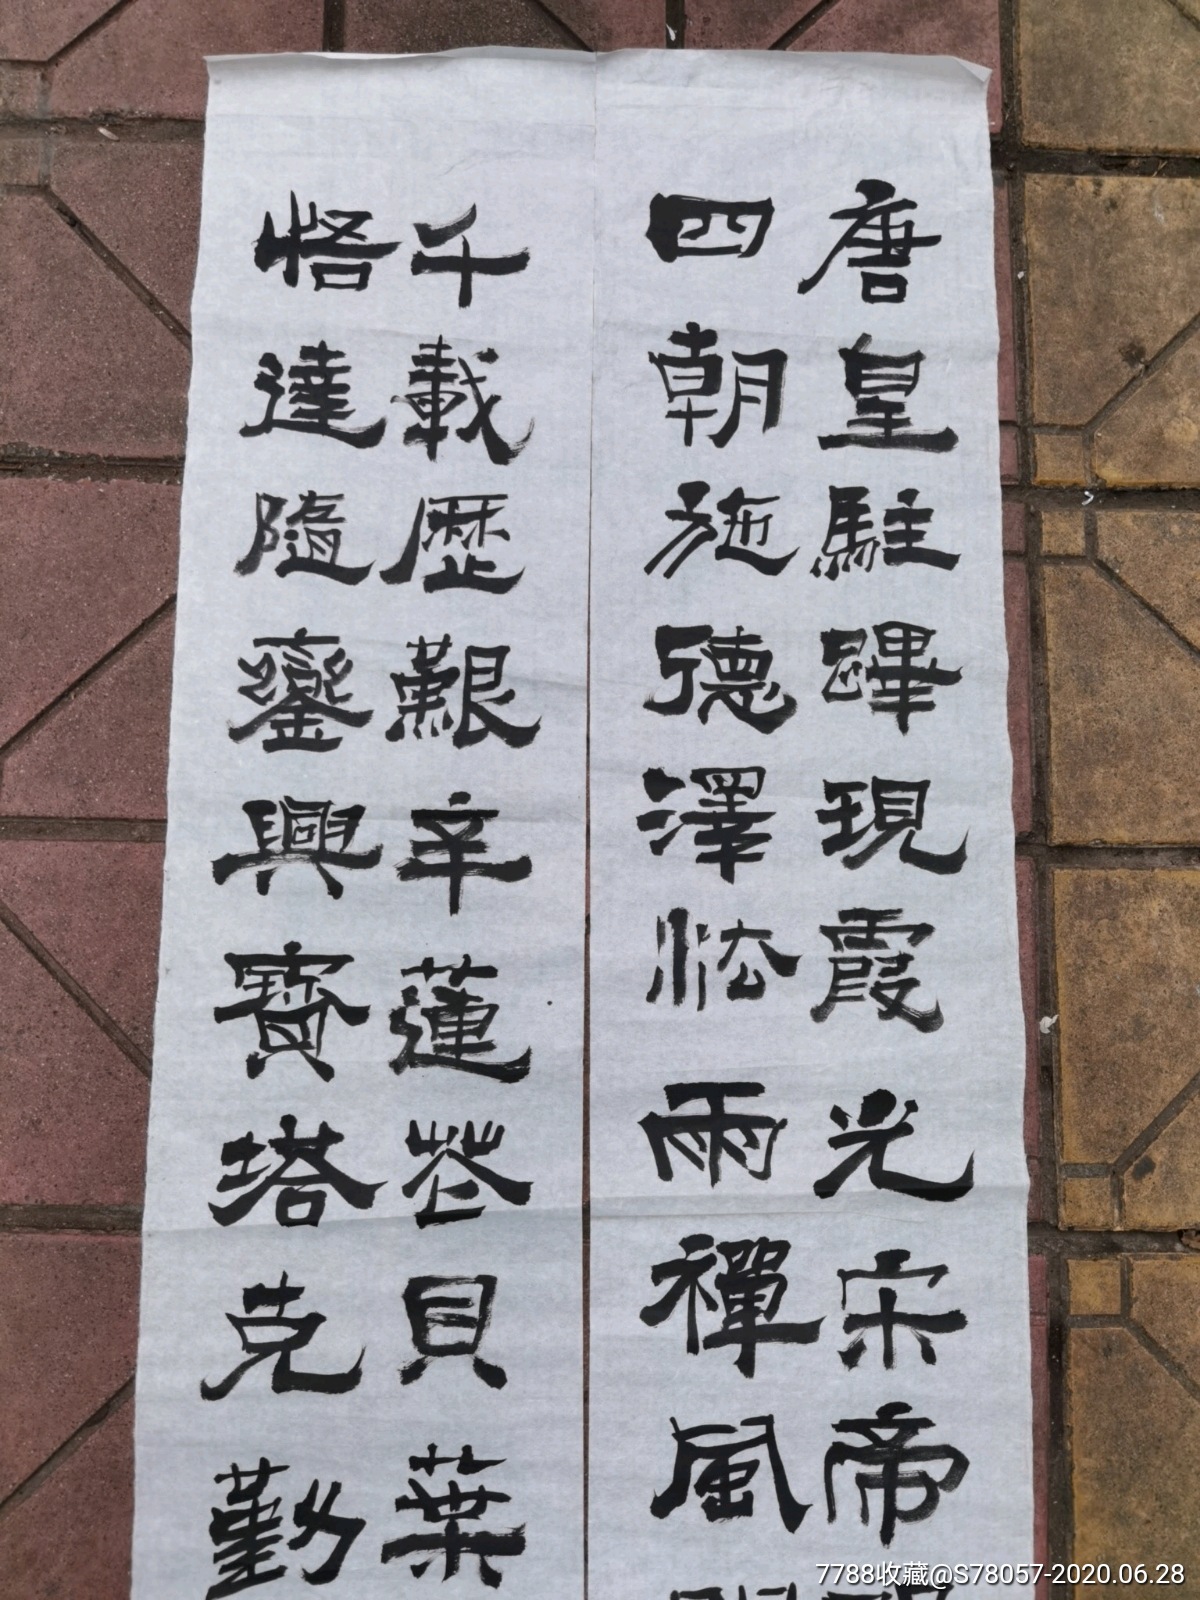 唐皇駐蹕現霞光宋帝
四朝施德澤㳒雨禪風
千載歷艱辛蓮花貝葉
悟達隨鑾興寶塔克勤
7788收藏@S78057-2020.06.28